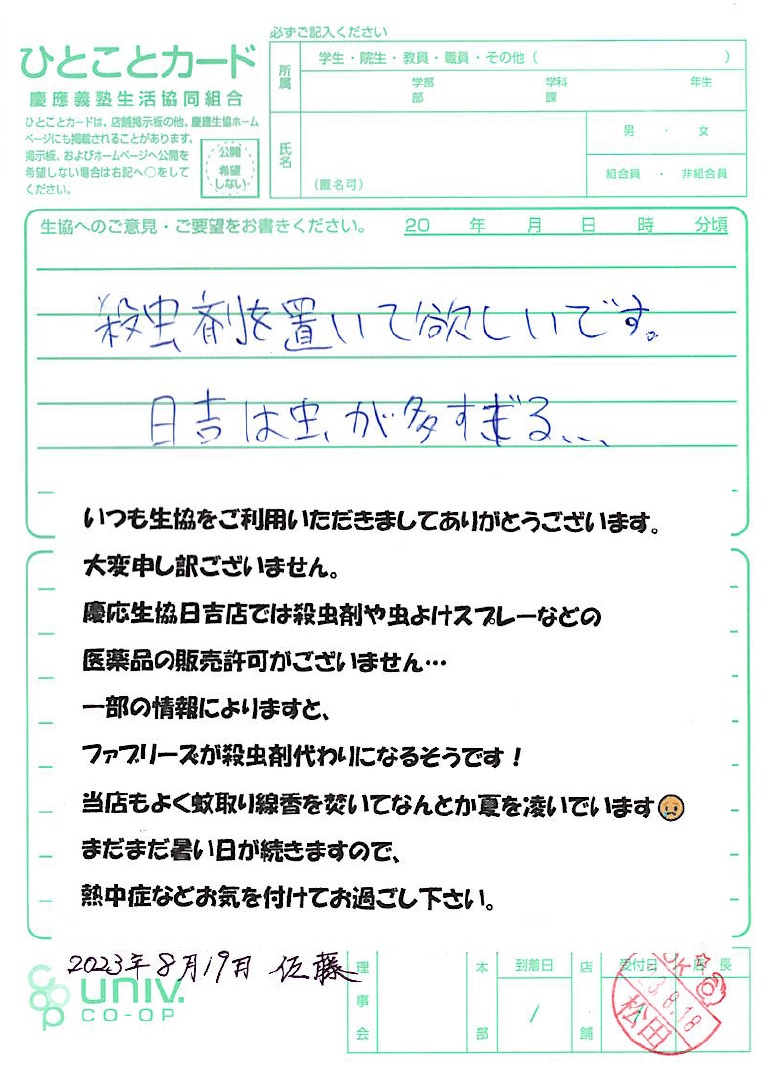 必ずご記入ください
ひとことカード
慶應義塾生活協同組合
ひとことカードは、店舗掲示板の他、慶應生協ホーム
ページにも掲載されることがあります。
掲示板、およびホームページへ公開を
希望しない場合は右記へ○をして
ください。
公開
希望
しない
所属
学生・院生・教員・職員・その他（　　　）
学部 学科 年生
部 課
氏名
（匿名可）
男 ・ 女
組合員 ・ 非組合員
生協へのご意見・ご要望をお書きください。 20 年 月 日 時 分頃
殺虫剤を置いて欲しいです。
日吉は虫が多すぎる、、、
いつも生協をご利用いただきましてありがとうございます。
大変申し訳ございません。
慶応生協日吉店では殺虫剤や虫よけスプレーなどの
医薬品の販売許可がございません…
一部の情報によりますと、
ファブリーズが殺虫剤代わりになるそうです！
当店もよく蚊取り線香を焚いてなんとか夏を凌いでいます😢
まだまだ暑い日が続きますので、
熱中症などお気を付けてお過ごし下さい。
2023年8月19日 佐藤
univ.
CO-OP
理事会
本部
到着日
/
店舗
受付日
店長
23.8.18
松田